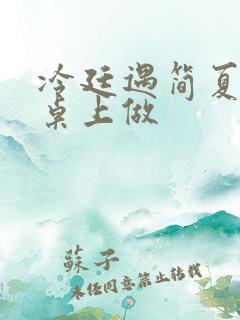 冷廷遇简夏
桌上做
蘇子
未经同意禁止转载